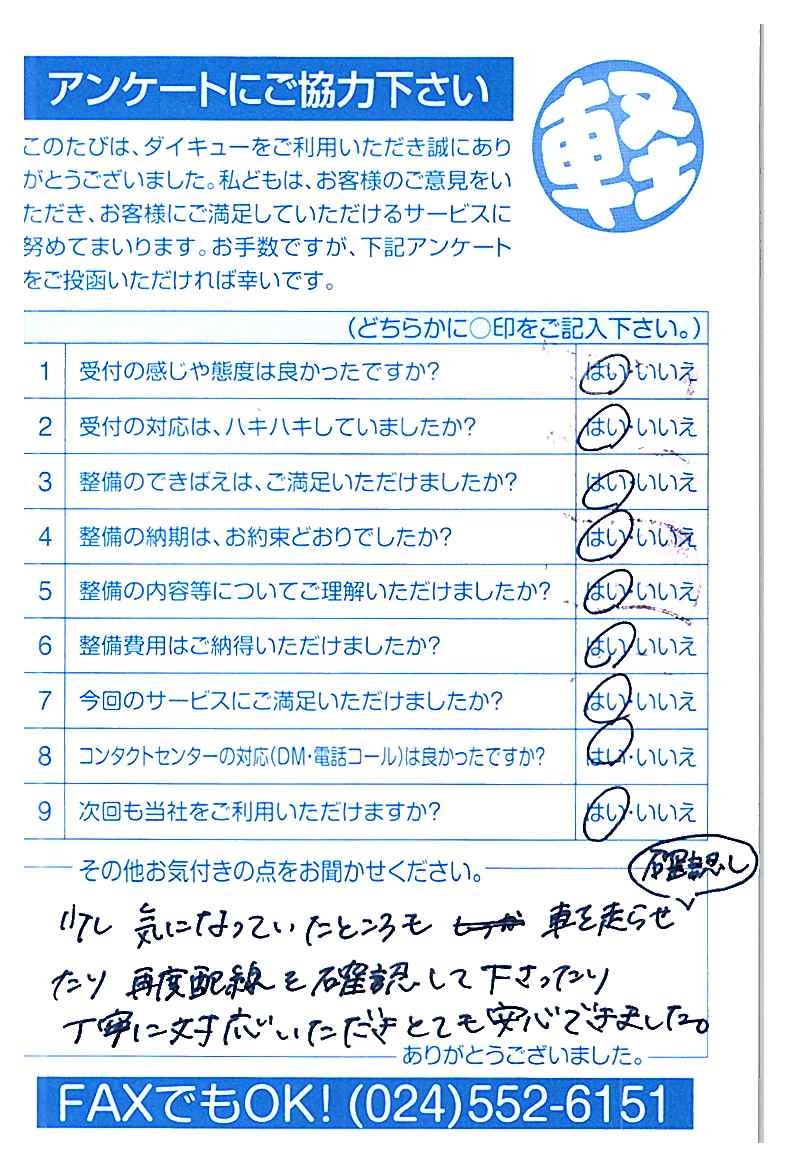 アンケートにご協力下さい
軽
このたびは、ダイキューをご利用いただき誠にあり
がとうございました。私どもは、お客様のご意見をい
ただき、お客様にご満足していただけるサービスに
努めてまいります。お手数ですが、下記アンケート
をご投函いただければ幸いです。
(どちらかに○印をご記入下さい。)
1 受付の感じや態度は良かったですか? はい・いいえ
2 受付の対応は、ハキハキしていましたか? はい・いいえ
3 整備のできばえは、ご満足いただけましたか? はい・いいえ
4 整備の納期は、お約束どおりでしたか? はい・いいえ
5 整備の内容等についてご理解いただけましたか? はい・いいえ
6 整備費用はご納得いただけましたか? はい・いいえ
7 今回のサービスにご満足いただけましたか? はい・いいえ
8 コンタクトセンターの対応(DM・電話コール)は良かったですか? はい・いいえ
9 次回も当社をご利用いただけますか? はい・いいえ
その他お気付きの点をお聞かせください。
確認し
少し 気になっていたところも 車を走らせ
たり 再度配線を確認して下さったり
丁寧に対応いただきとても安心できました。
ありがとうございました。
FAXでもOK! (024)552-6151